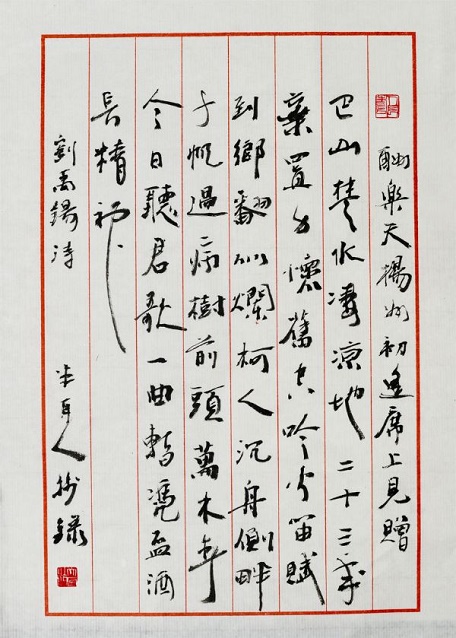 酬樂天揚州初逢席上見贈
巴山楚水凄涼地二十三年
棄置身懷舊空吟聞笛賦
到鄉翻似爛柯人沉舟側畔
千帆過病樹前頭萬木春
今日聽君歌一曲暫憑盃酒
長精神
劉禹錫詩 人抄錄